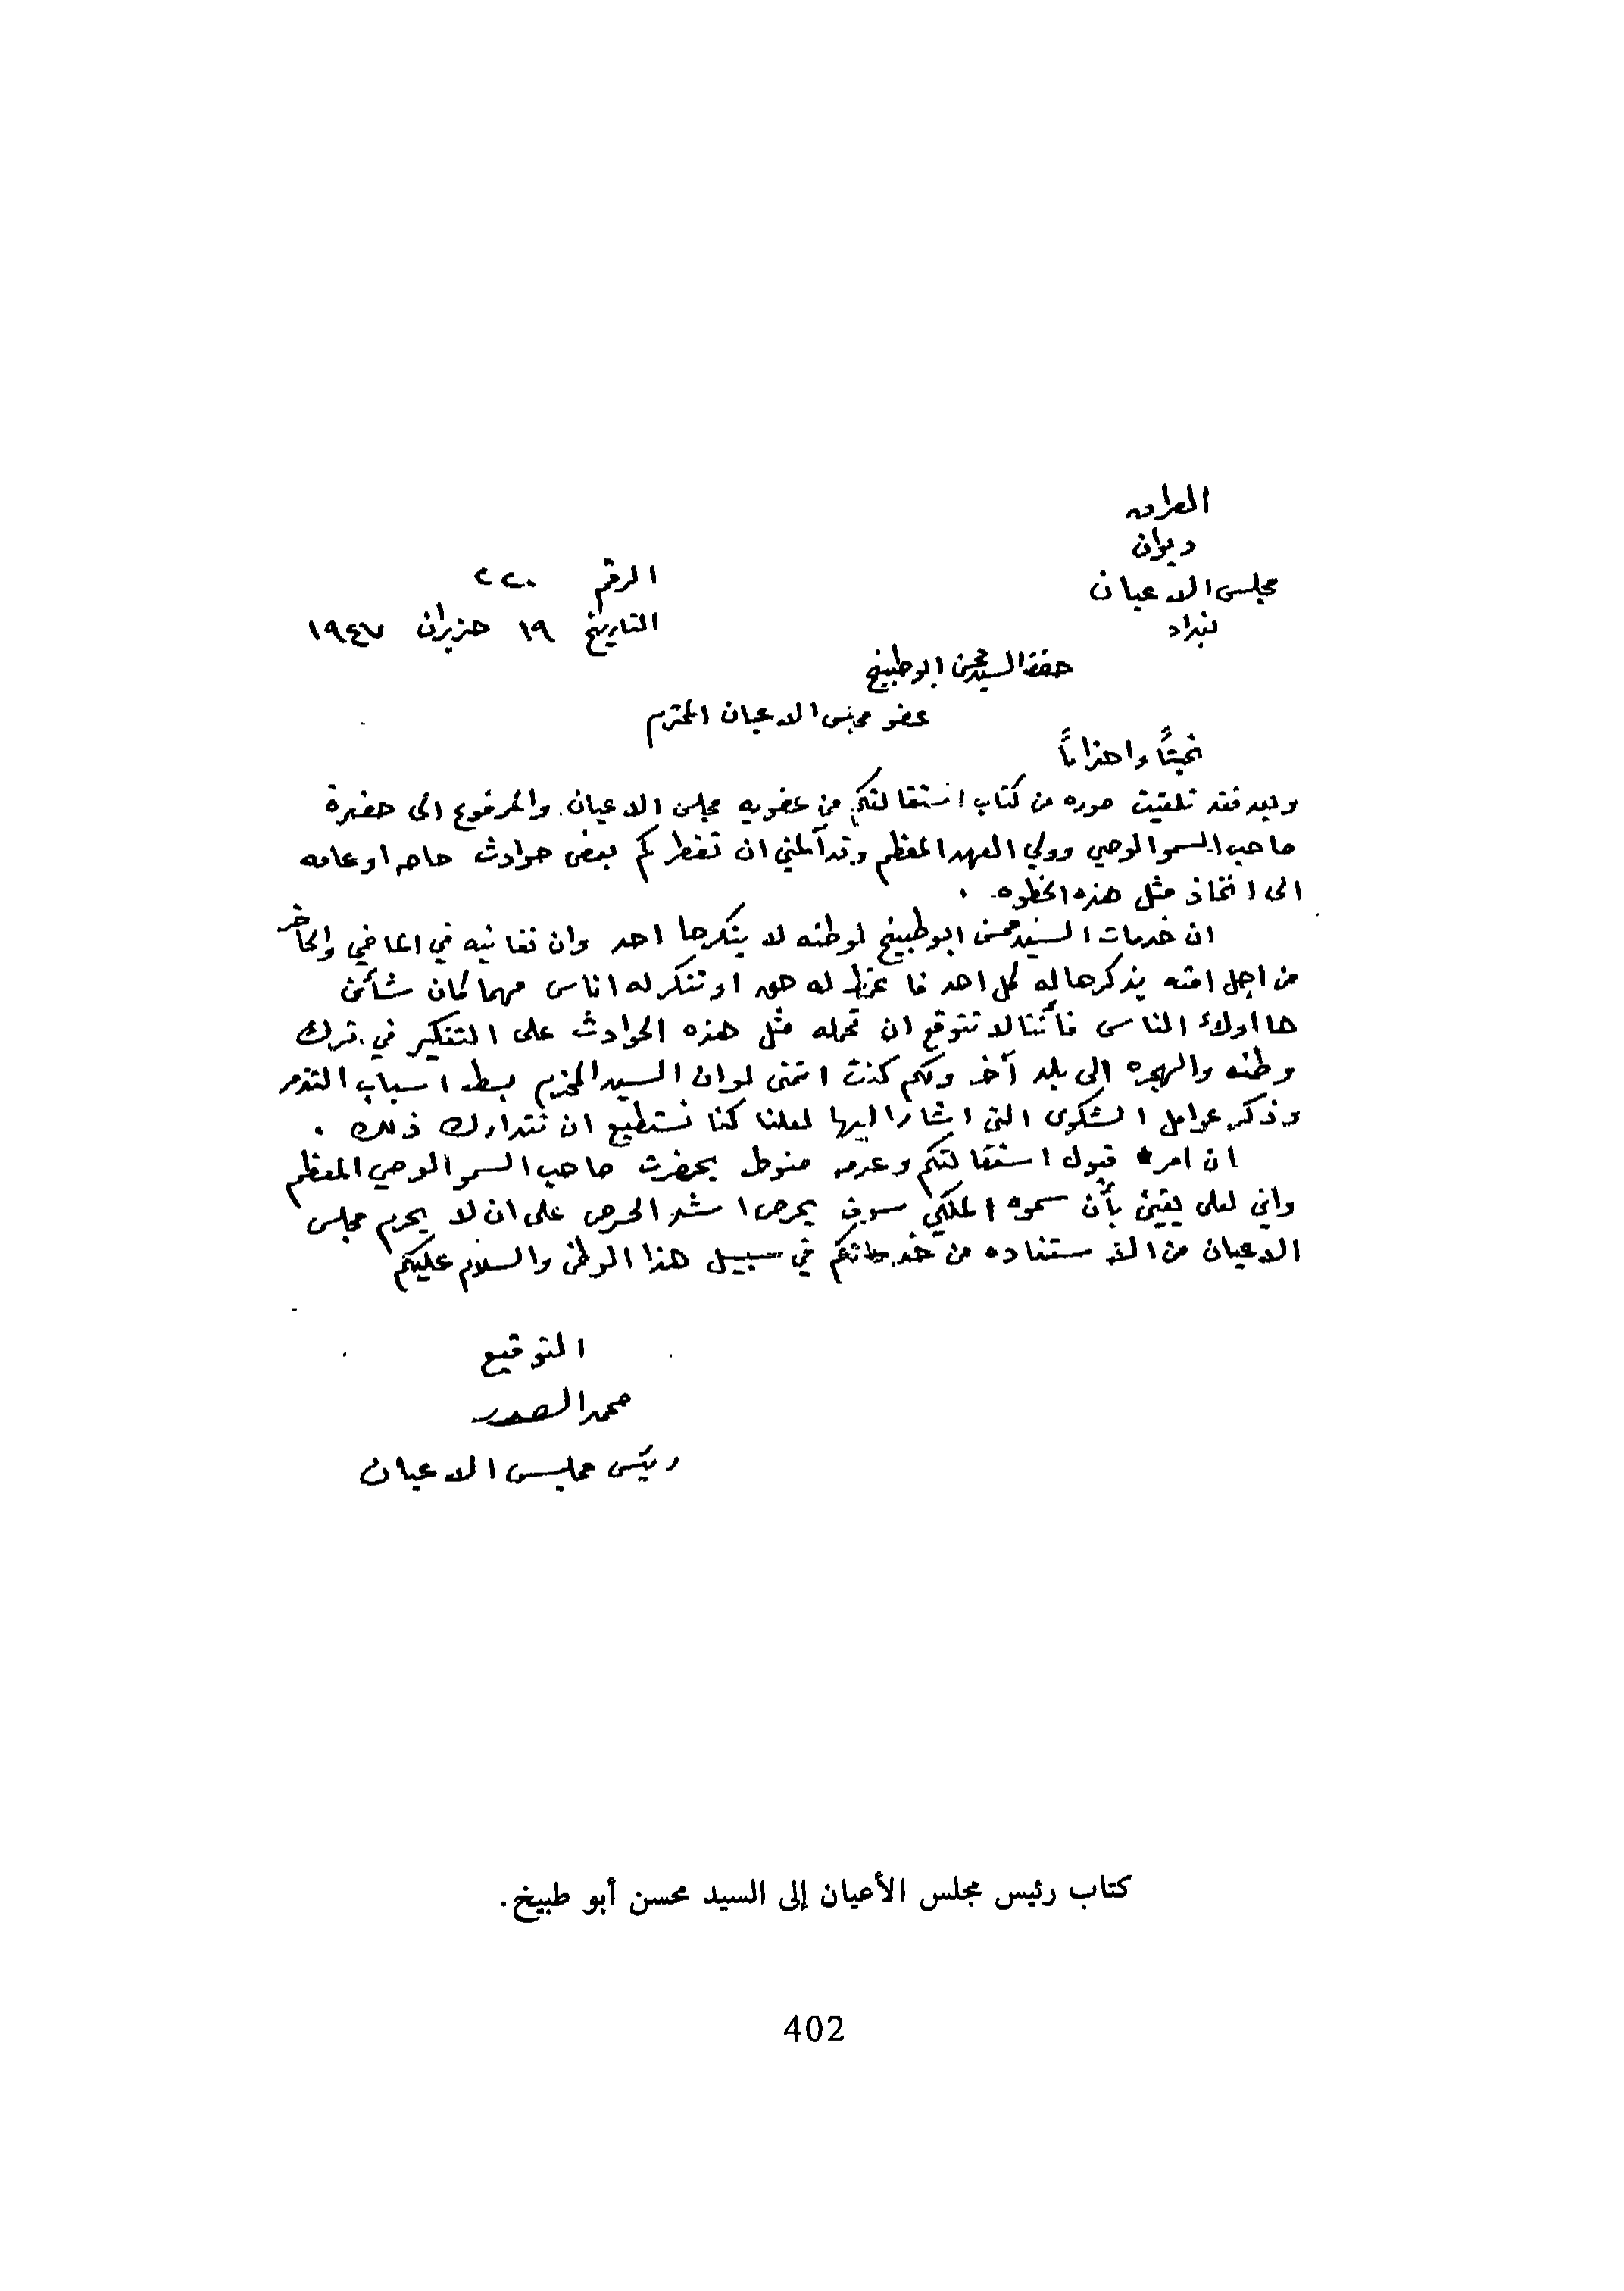 العراق
ديوان
مجلس الاعيان
بغداد
الرقم ٢٢٠
التاريخ ١٩ حزيران ١٩٤٧
السيد محسن ابوطبيخ
عضو مجلس الاعيان المحترم
تحيتاً واحتراماً
وبعد فقد تلقيت صوره من كتاب استقالتكم من عضويه مجلس الاعيان. والمرفوع الى حضرة
صاحب السمو الوصي وولي العهد المعظم وقد آلمني ان تضطركم بعض حوادث خاصه او عامه
الى اتخاذ مثل هذه الخطوه.
ان خدمات السيد محسن ابوطبيخ لوطنه لا ينكرها احد وان تفانيه في الماضي والحاضر
من اجل امته يذكرها له كل احد فا له حق او تنكر له اناس مهما كان شأن
هااولاء الناس فأننا لا نتوقع ان تحمله مثل هذه الحوادث على التفكير في ترك
وطنه والهجره الى بلد آخر ولكم كنت اتمنى لو ان السيد المحترم بسط اسباب التذمر
وذكر عوامل الشكوى التي اشار اليها لعلنا كنا نستطيع ان نتدارك ذلك.
ان امر قبول استقالتكم وعدمه منوط بحضرت صاحب السمو الوصي المعظم
واني لعلى يقين بأن سموه الملكي سوف يحرص اشد الحرص على ان لا يحرم مجلس
الاعيان من الاستفاده من خدماتكم في سبيل هذا الوطن والسلام عليكم
التوقيع
محمد الصدر
رئيس مجلس الاعيان
كتاب رئيس مجلس الأعيان إلى السيد محسن أبو طبيخ.
402